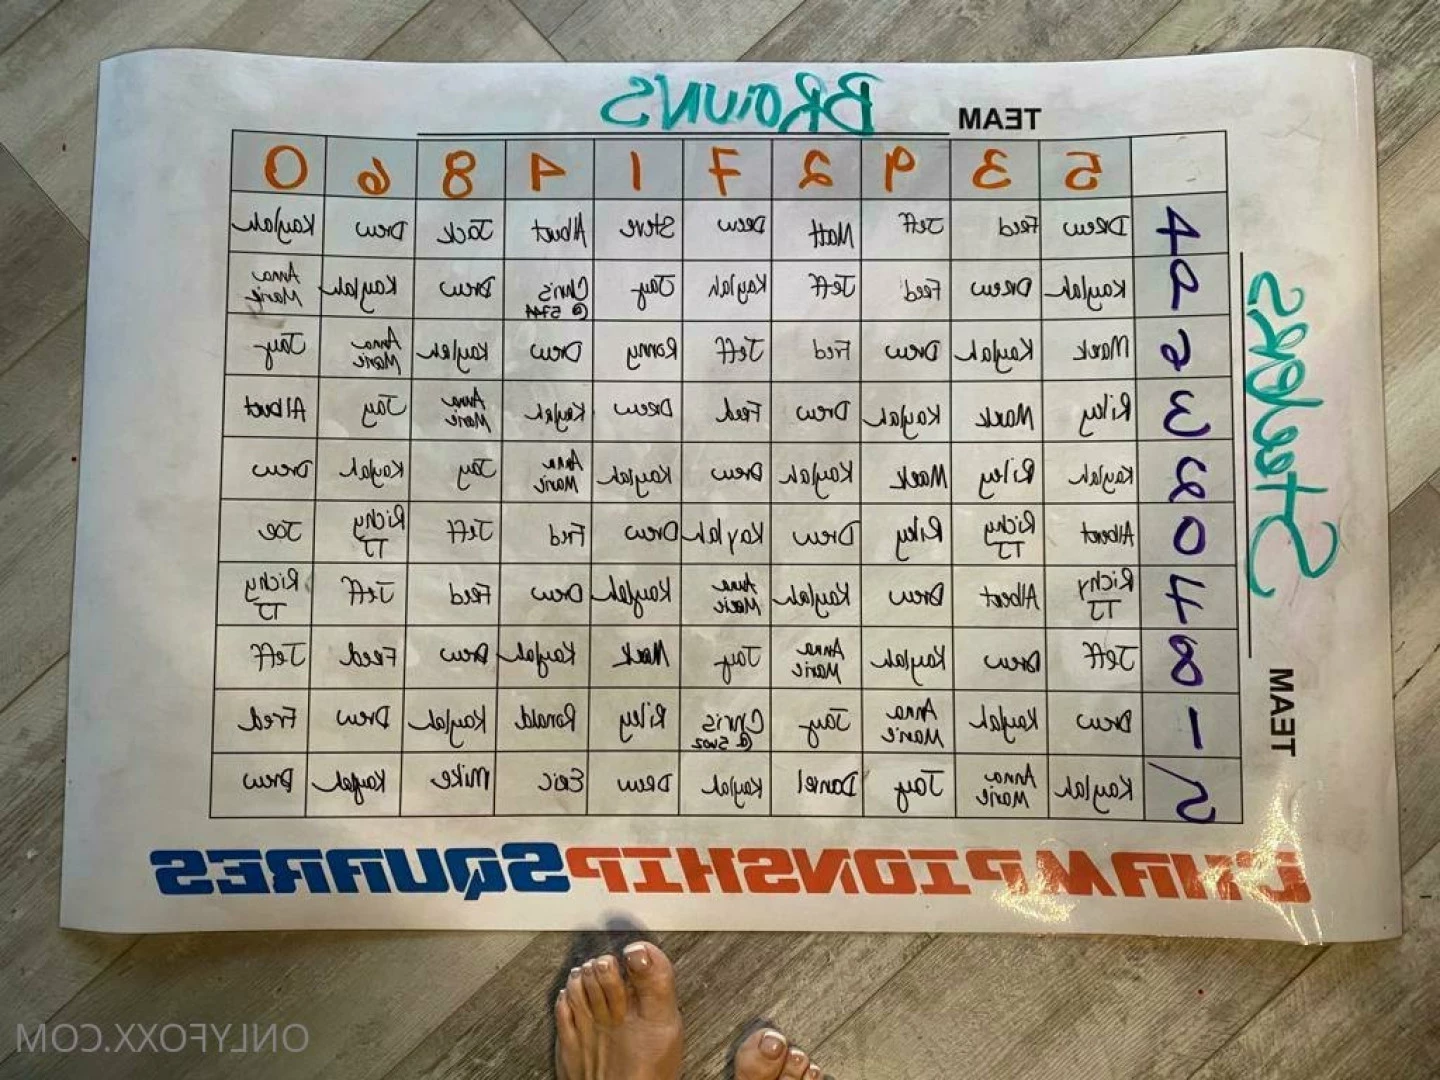 TEAM BROWNS
5 3 9 2 7 1 4 8 6 0
4 Drew Fred Jeff Matt Drew Steve Albert Jack Drew Kaylah
Kaylah Drew Fred Jeff Kaylah Jay Chris @ 5744 Drew Kaylah Anna Marie
6 Mark Kaylah Drew Fred Jeff Ronny Drew Kaylah Anna Marie Jay
3 Riley Mark Kaylah Drew Fred Drew Kaylah Anna Marie Jay Albert
2 Kaylah Riley Mark Kaylah Drew Kaylah Anna Marie Jay Kaylah Drew
0 Albert Richy TJ Riley Drew Kaylah Drew Fred Jeff Richy TJ Joe
7 Richy TJ Albert Drew Kaylah Anna Marie Kaylah Drew Fred Jeff Richy TJ
8 Jeff Drew Kaylah Anna Marie Jay Mark Kaylah Drew Fred Jeff
1 Drew Kaylah Anna Marie Jay Chris @ 5402 Riley Ronald Kaylah Drew Fred
5 Kaylah Anna Marie Jay Daniel Kaylah Drew Eric Mike Kaylah Drew
TEAM Steelers
CHAMPIONSHIP SQUARES
ONLYFOXX.COM